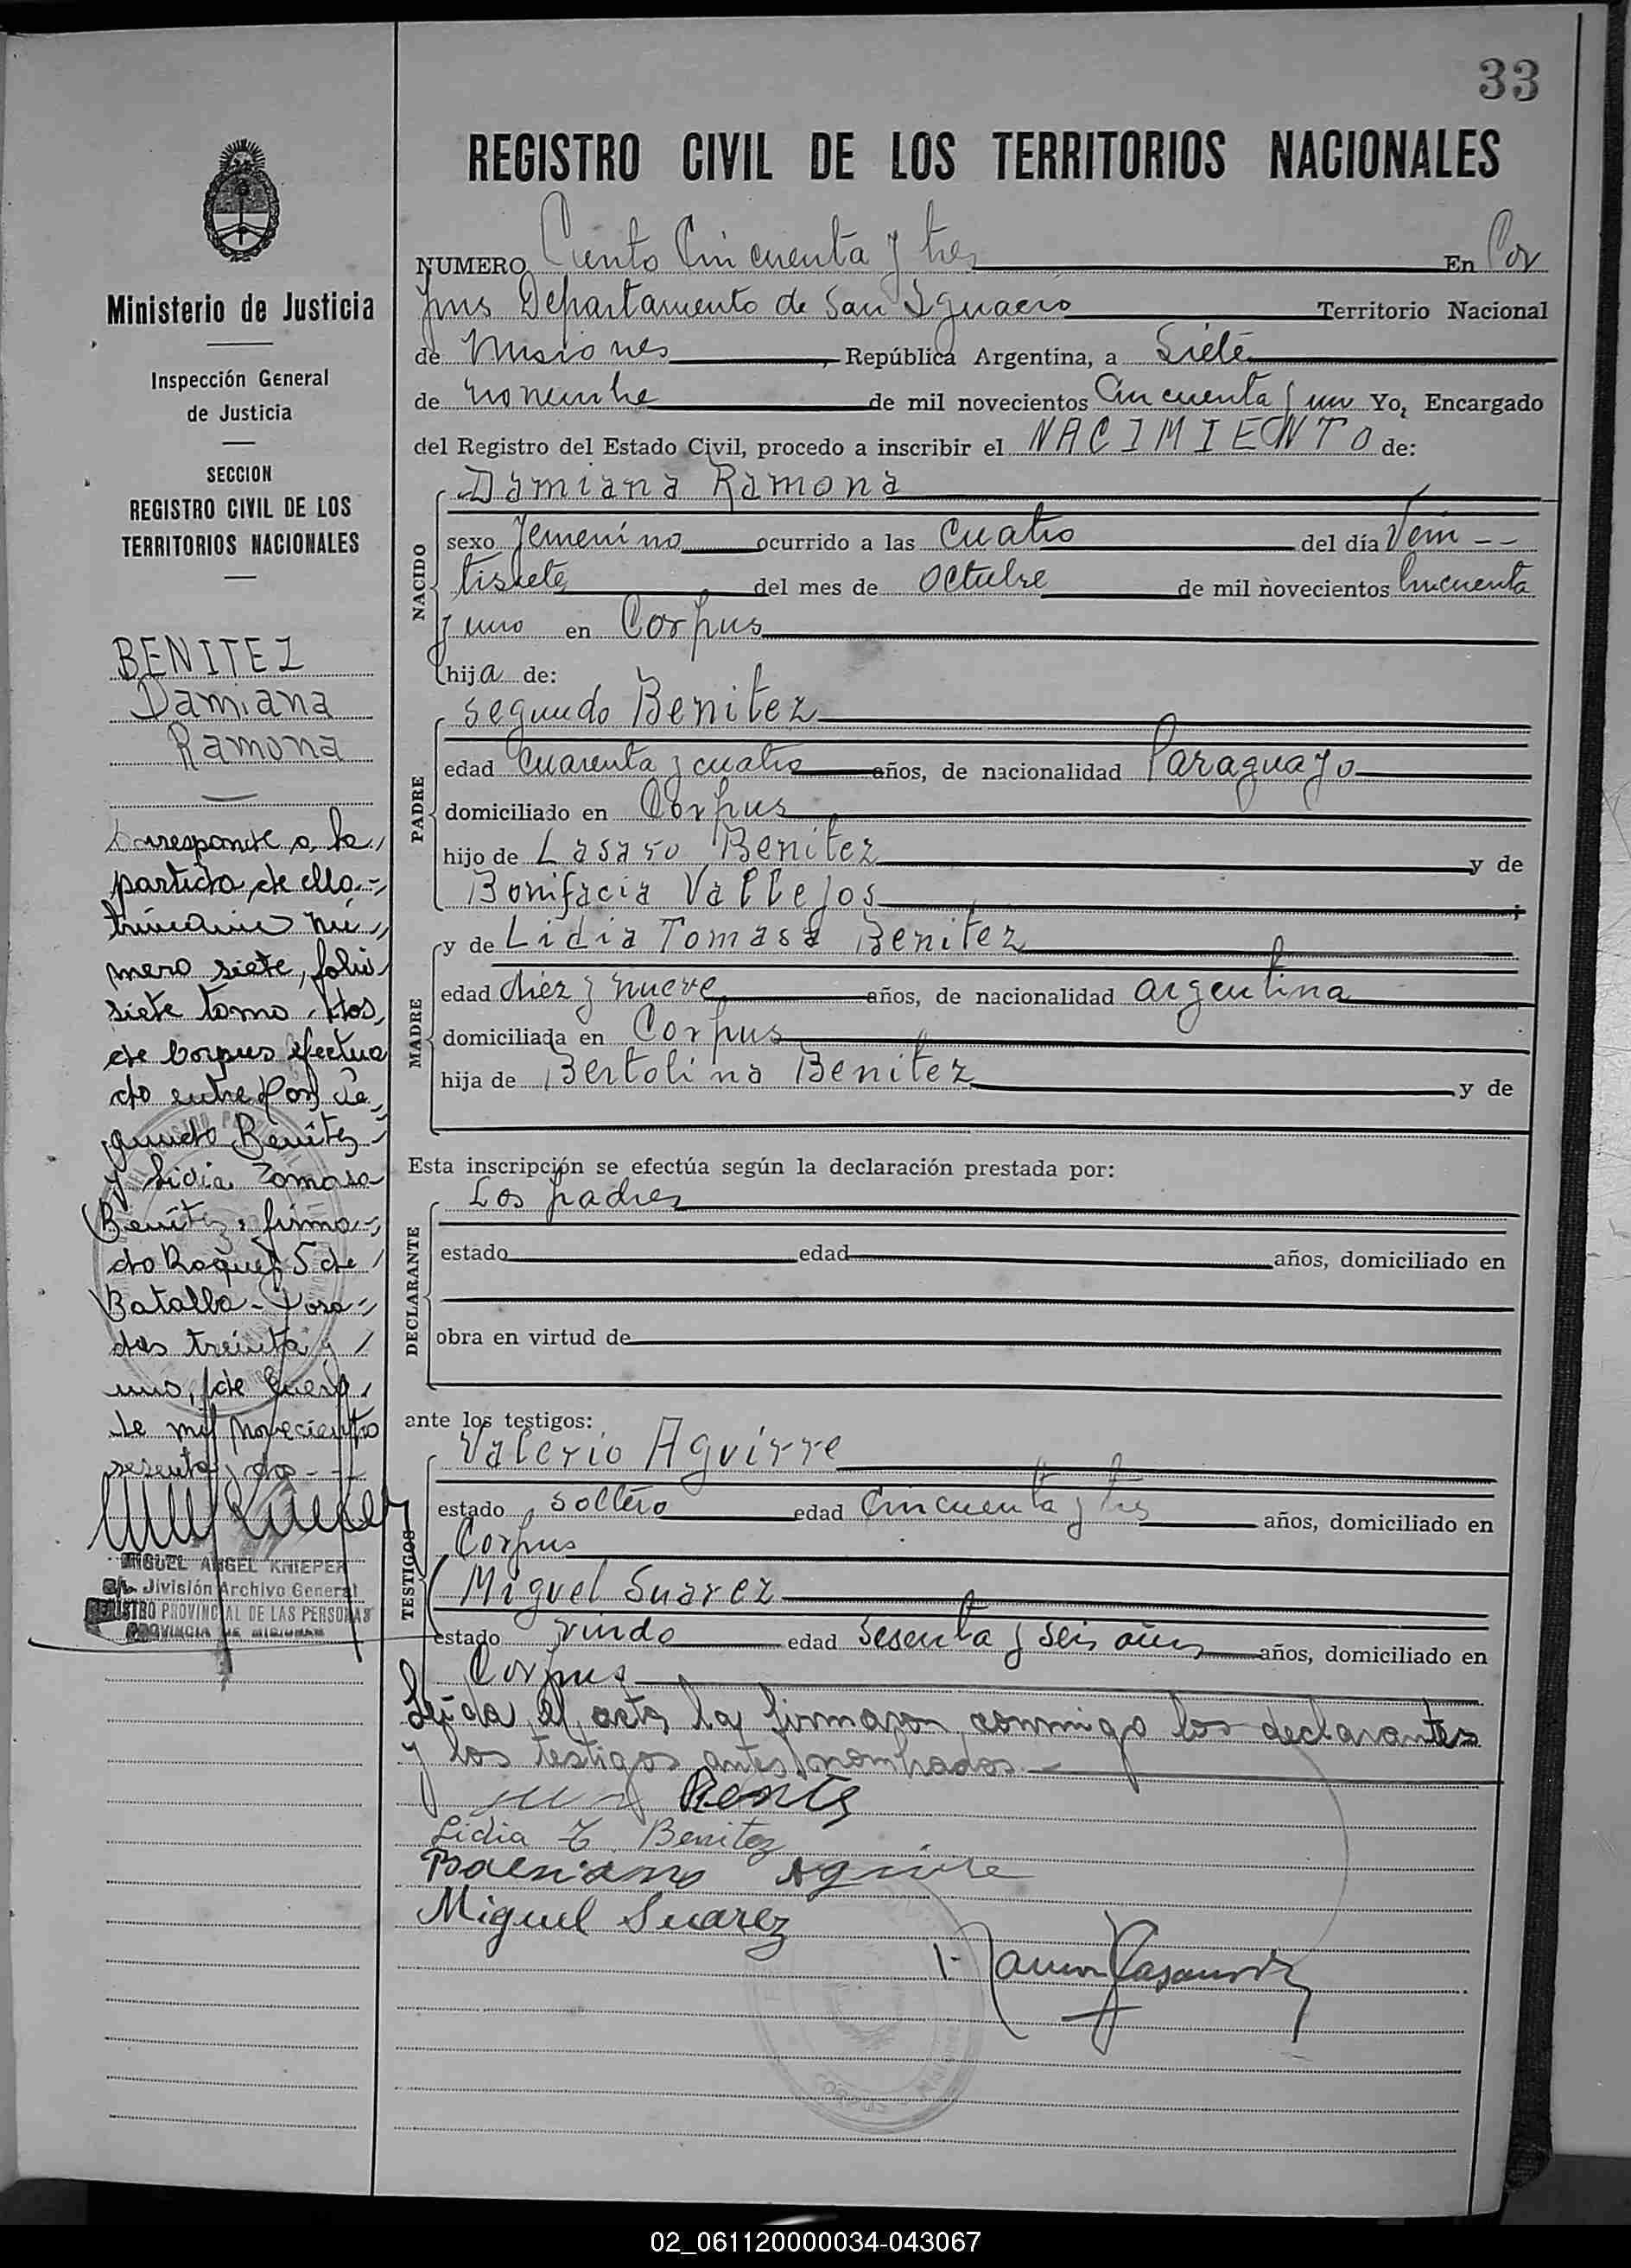 33
REGISTRO CIVIL DE LOS TERRITORIOS NACIONALES
NUMERO Ciento Cincuenta y tres En Cor
pus Departamento de San Ignacio Territorio Nacional
de Misiones, República Argentina, a Siete
de noviembre de mil novecientos Cincuenta y un Yo, Encargado
del Registro del Estado Civil, procedo a inscribir el NACIMIENTO de:
NACIDO
Damiana Ramona
sexo femenino ocurrido a las Cuatro del día Vein --
tisiete del mes de Octubre de mil novecientos Cincuenta
y uno en Corpus
hija de:
PADRE
Segundo Benitez
edad Cuarenta y cuatro años, de nacionalidad Paraguayo
domiciliado en Corpus
hijo de Lasaro Benitez y de
Bonifacia Vallejos ;
MADRE
y de Lidia Tomasa Benitez
edad diez y nueve años, de nacionalidad argentina
domiciliada en Corpus
hija de Bertolina Benitez y de
Esta inscripción se efectúa según la declaración prestada por:
DECLARANTE
Los padres
estado edad años, domiciliado en
obra en virtud de
ante los testigos:
TESTIGOS
Valerio Aguirre
estado soltero edad Cincuenta y tres años, domiciliado en
Corpus
Miguel Suarez
estado viudo edad Sesenta y seis años años, domiciliado en
Corpus
Leida el acta la firmaron conmigo los declarantes
y los testigos antes nombrados. —
Lidia T Benitez
Aguirre
Miguel Suarez
Ministerio de Justicia
Inspección General
de Justicia
SECCION
REGISTRO CIVIL DE LOS
TERRITORIOS NACIONALES
BENITEZ
Damiana
Ramona
Corresponde a la
partida de Ma-
trimonio nú
mero siete, folio
siete tomo dos,
de Corpus efectua
do entre Don Se
gundo Benitez
y Lidia Tomasa
Benitez, firma-
do Roque S de
Batalla - Posa-
das treinta y
uno, de Enero
de mil novecientos
sesenta y dos - -
MIGUEL ANGEL KNIEPER
División Archivo General
REGISTRO PROVINCIAL DE LAS PERSONAS
PROVINCIA DE MISIONES
02_061120000034-043067